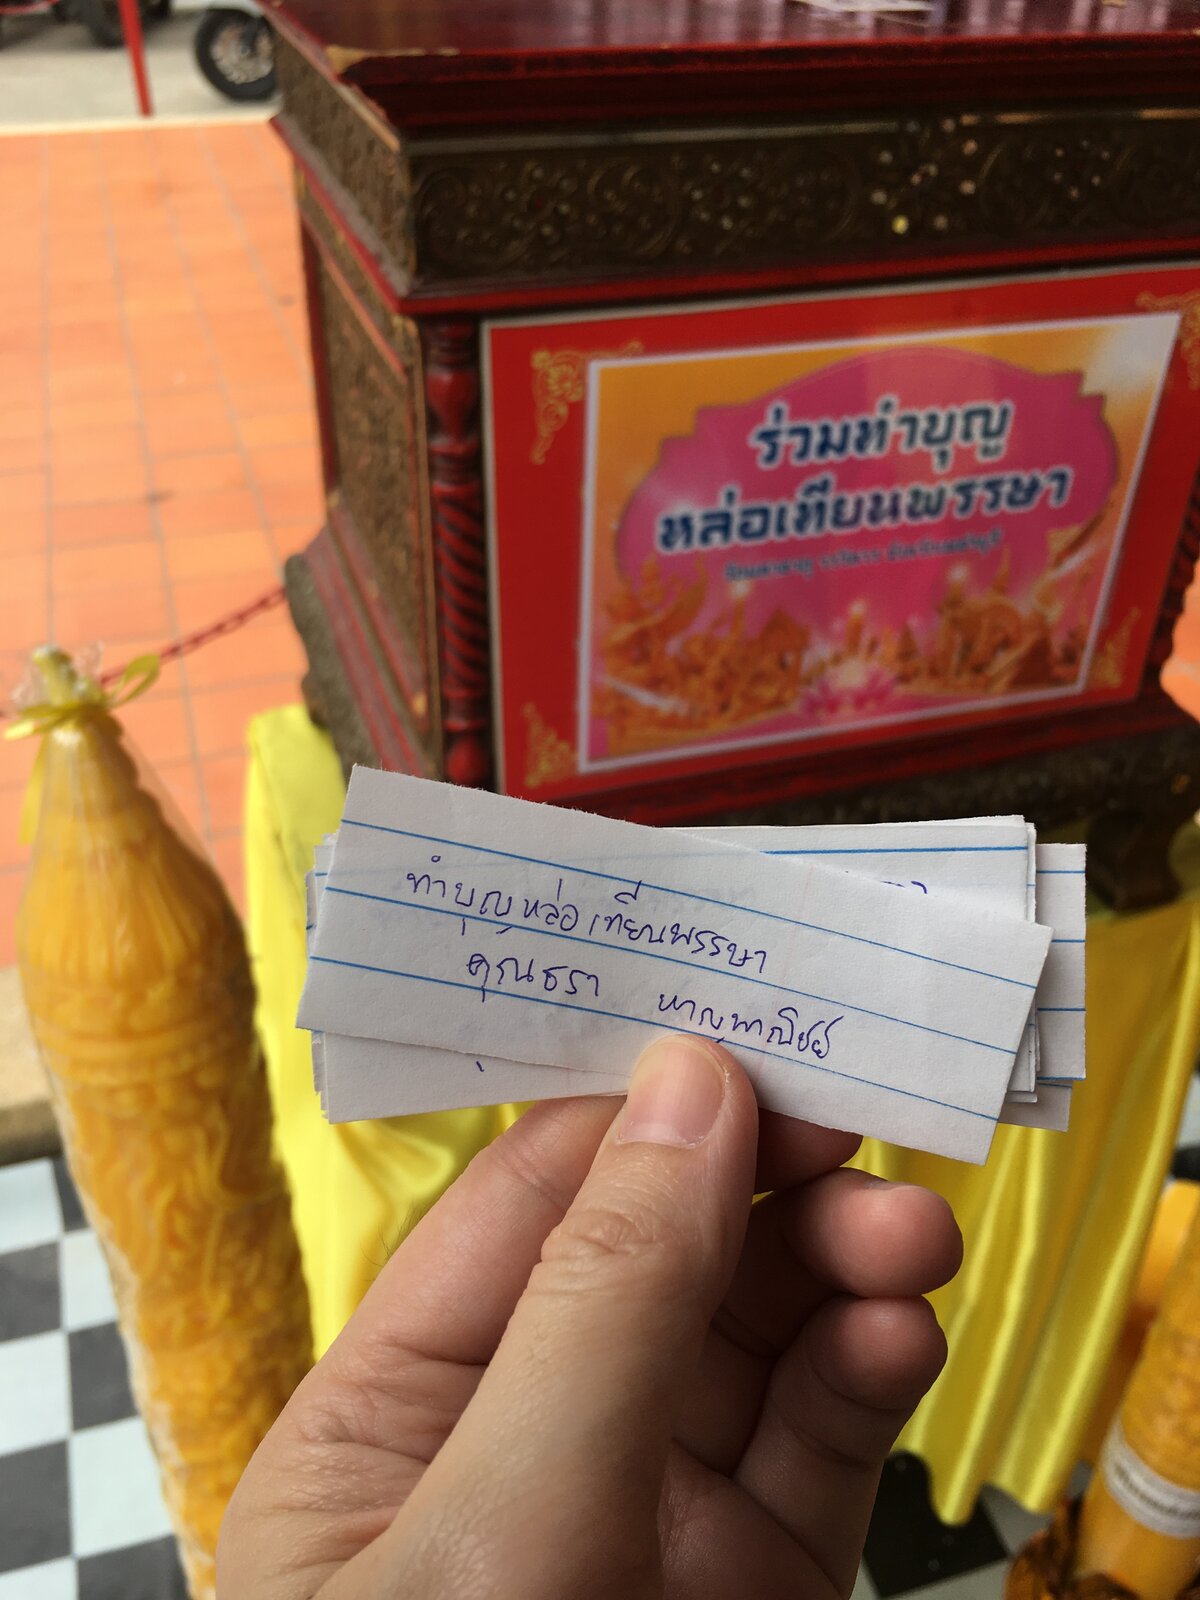 ร่วมทำบุญ
หล่อเทียนพรรษา
ทำบุญหล่อเทียนพรรษา
คุณธรา หาญพาณิชย์